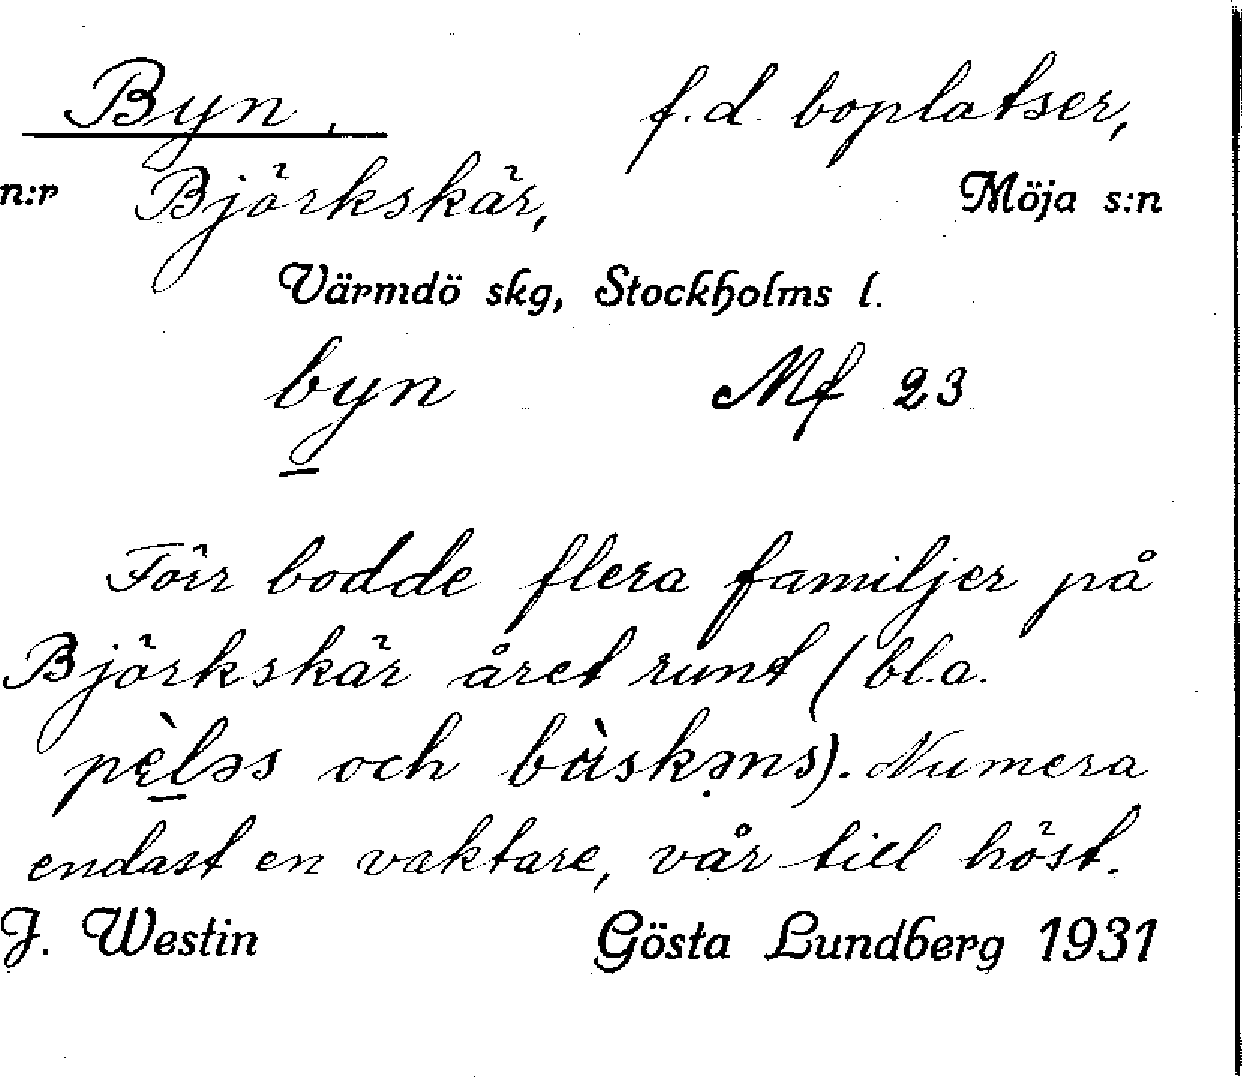 Byn, f.d. boplatser,
n:r Björkskär, Möja s:n
Värmdö skg, Stockholms l.
byn Mf 23
Förr bodde flera familjer på
Björkskär året runt (bl.a.
och Numera
endast en vaktare, vår till höst.
J. Westin Gösta Lundberg 1931